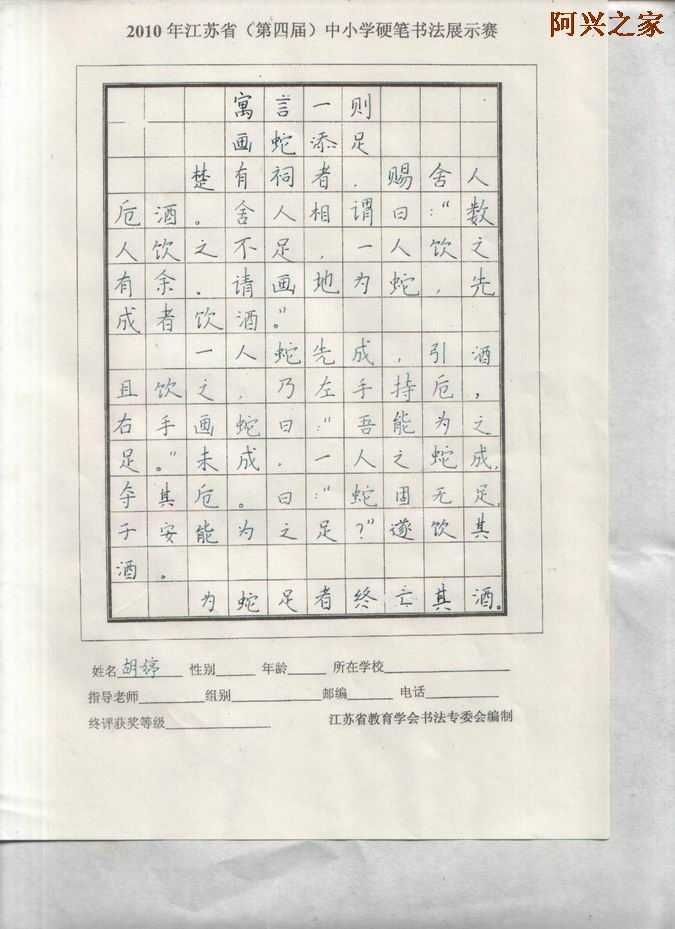 阿兴之家
2010年江苏省（第四届）中小学硬笔书法展示赛
寓言一则
画蛇添足
楚有祠者．赐舍人
卮酒。舍人相谓曰：“数
人饮之不足，一人饮之
有余．请画地为蛇，先
成者饮酒。”
一人蛇先成，引酒
且饮之，乃左手持卮，
右手画蛇曰：“吾能为之
足。”未成，一人之蛇成，
夺其卮。曰：“蛇固无足，
子安能为之足？”遂饮其
酒．
为蛇足者终亡其酒。
姓名胡婷 性别 年龄 所在学校
指导老师 组别 邮编 电话
终评获奖等级 江苏省教育学会书法专委会编制